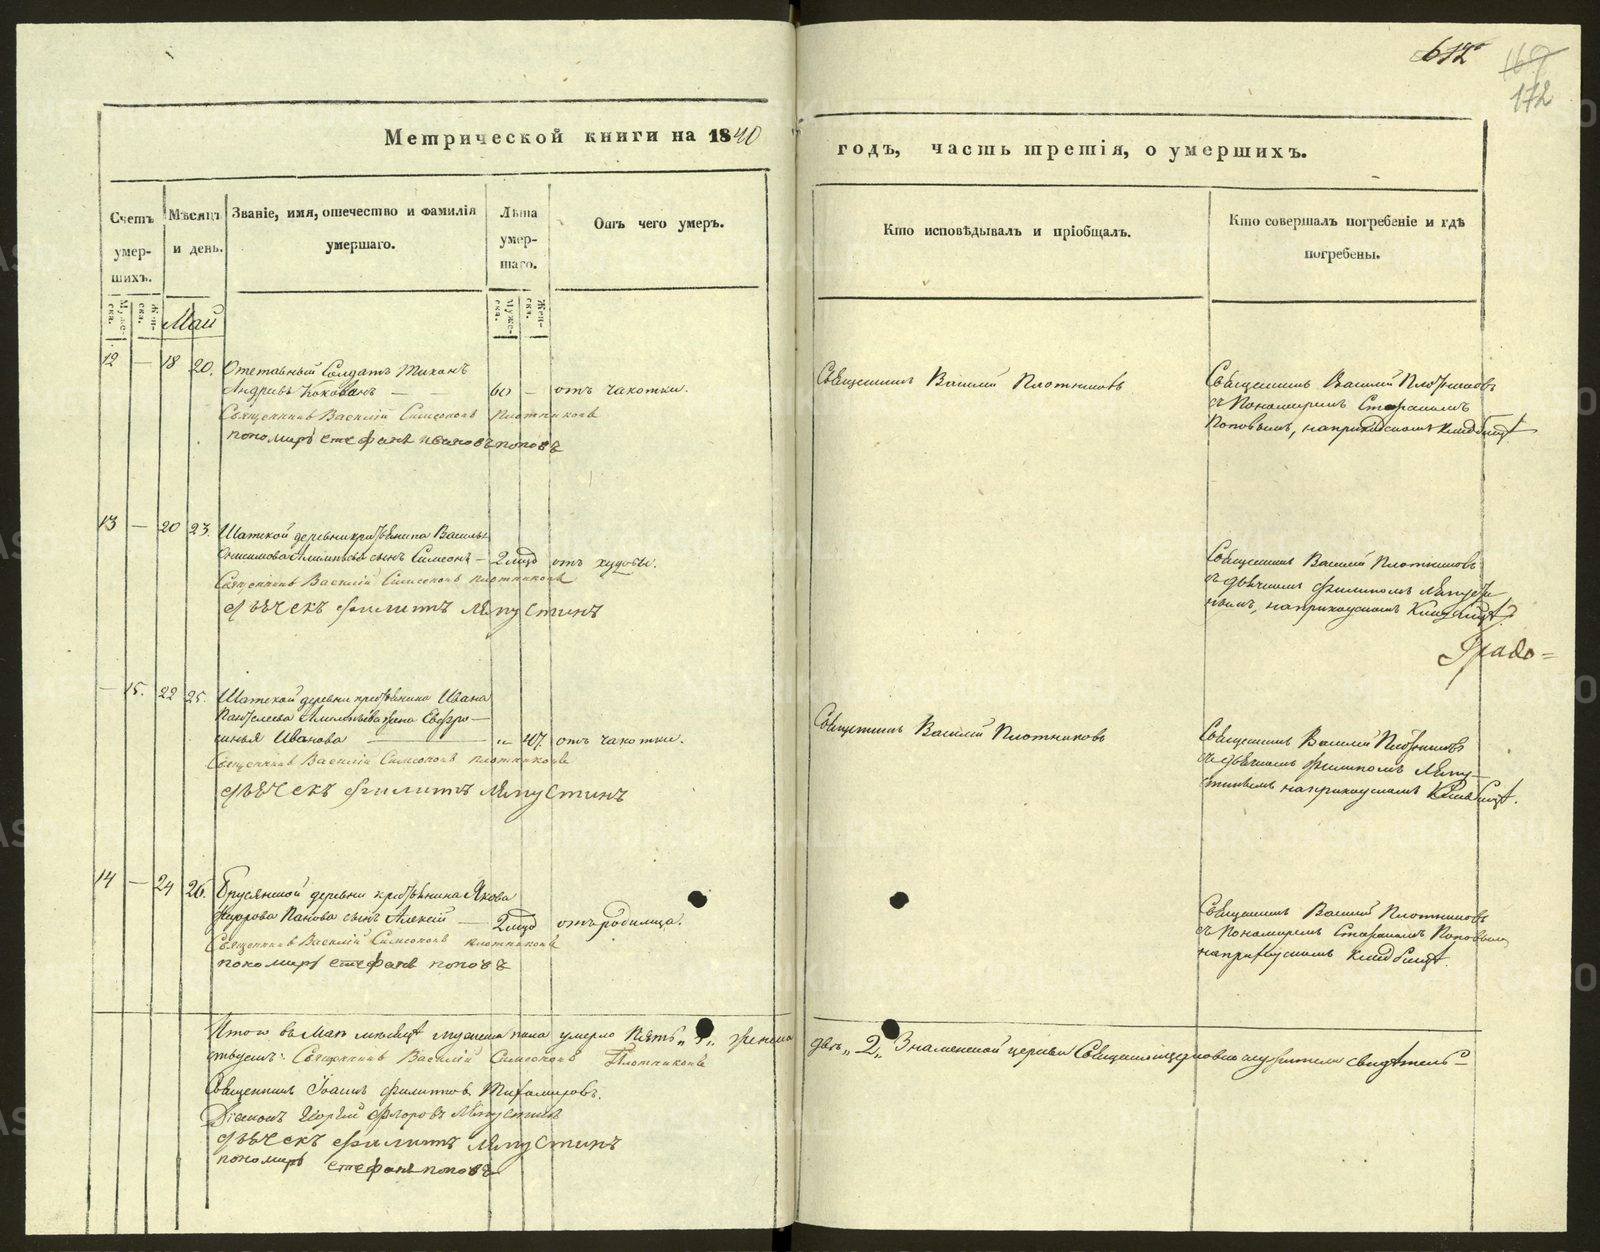 612
167
172
Метрической книги на 1840
годъ, часть третія, о умершихъ.
Счетъ умер-шихъ.
Мѣсяцъ и день.
Званіе, имя, отечество и фамилія умершаго.
Лѣта умер-шаго.
Отъ чего умеръ.
Кто исповѣдывалъ и пріобщалъ.
Кто совершалъ погребеніе и гдѣ погребены.
Муже-ска.
Жен-ска.
Муже-ска.
Жен-ска.
Май
12 — 18 20.
Отставный Солдатъ
Андрѣевъ 60 — отъ чахотки.
Священникъ Василий Симеоновъ Плотниковъ
пономарь стефанъ ивановъ поповъ
Священникъ Василий Плотниковъ
Священникъ Василий Плотниковъ
съ Пономаремъ Стефаномъ
Поповымъ, на приходскомъ кладбищѣ
13 — 20 23.
Шатской деревни крестьянина Василья
сынъ Симеонъ — 2 мѣсяц отъ худобы.
Священникъ Василий Симеоновъ плотниковъ
дьячекъ филиппъ ляпустинъ
Священникъ Василий Плотниковъ
съ дьячкомъ филипомъ Ляпусти
нымъ, на приходскомъ Кладбищѣ
Градо=
— 15. 22 25.
Шатской деревни крестьянина Ивана
жена Евфро—
синья Иванова — „ 47. отъ чахотки.
Священникъ Василий Симеоновъ плотниковъ
дьячекъ филиппъ ляпустинъ
Священникъ Василий Плотниковъ
Священникъ Василий Плотниковъ
съ дьячкомъ филипомъ Ляпу-
стинымъ на приходскомъ Кладбищѣ.
14 — 24 26.
Брусянской деревни крестьянина Якова
Панова сынъ Алексѣй — 2 мѣсяц отъ родимца.
Священникъ Василий Симеоновъ плотниковъ
пономарь стефанъ поповъ
Священникъ Василий Плотниковъ
съ Пономаремъ Стефаномъ Поповымъ
на приходскомъ кладбищѣ.
Итого въ Маѣ мѣсяцѣ мужеска пола умерло Пять „ 5 „ женска
двѣ „ 2 „ Знаменской церкви Священноцерковнослужители свидѣтель—
ствуемъ: Священникъ Василий Симеоновъ Плотниковъ
Священникъ Іоаннъ филиповъ Тихомировъ.
Діаконъ Георгій Флоровъ Ляпустинъ
дьячекъ филиппъ ляпустинъ
пономарь стефанъ поповъ